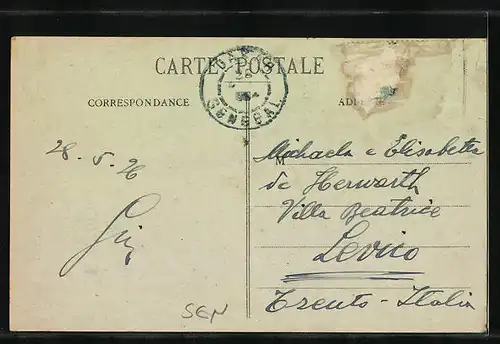 CARTE POSTALE
CORRESPONDANCE
28-5-26
SEN
M
Michaela e Elisabetta
de Herwarth
Villa Beatrice
Levico
Trento - Italia